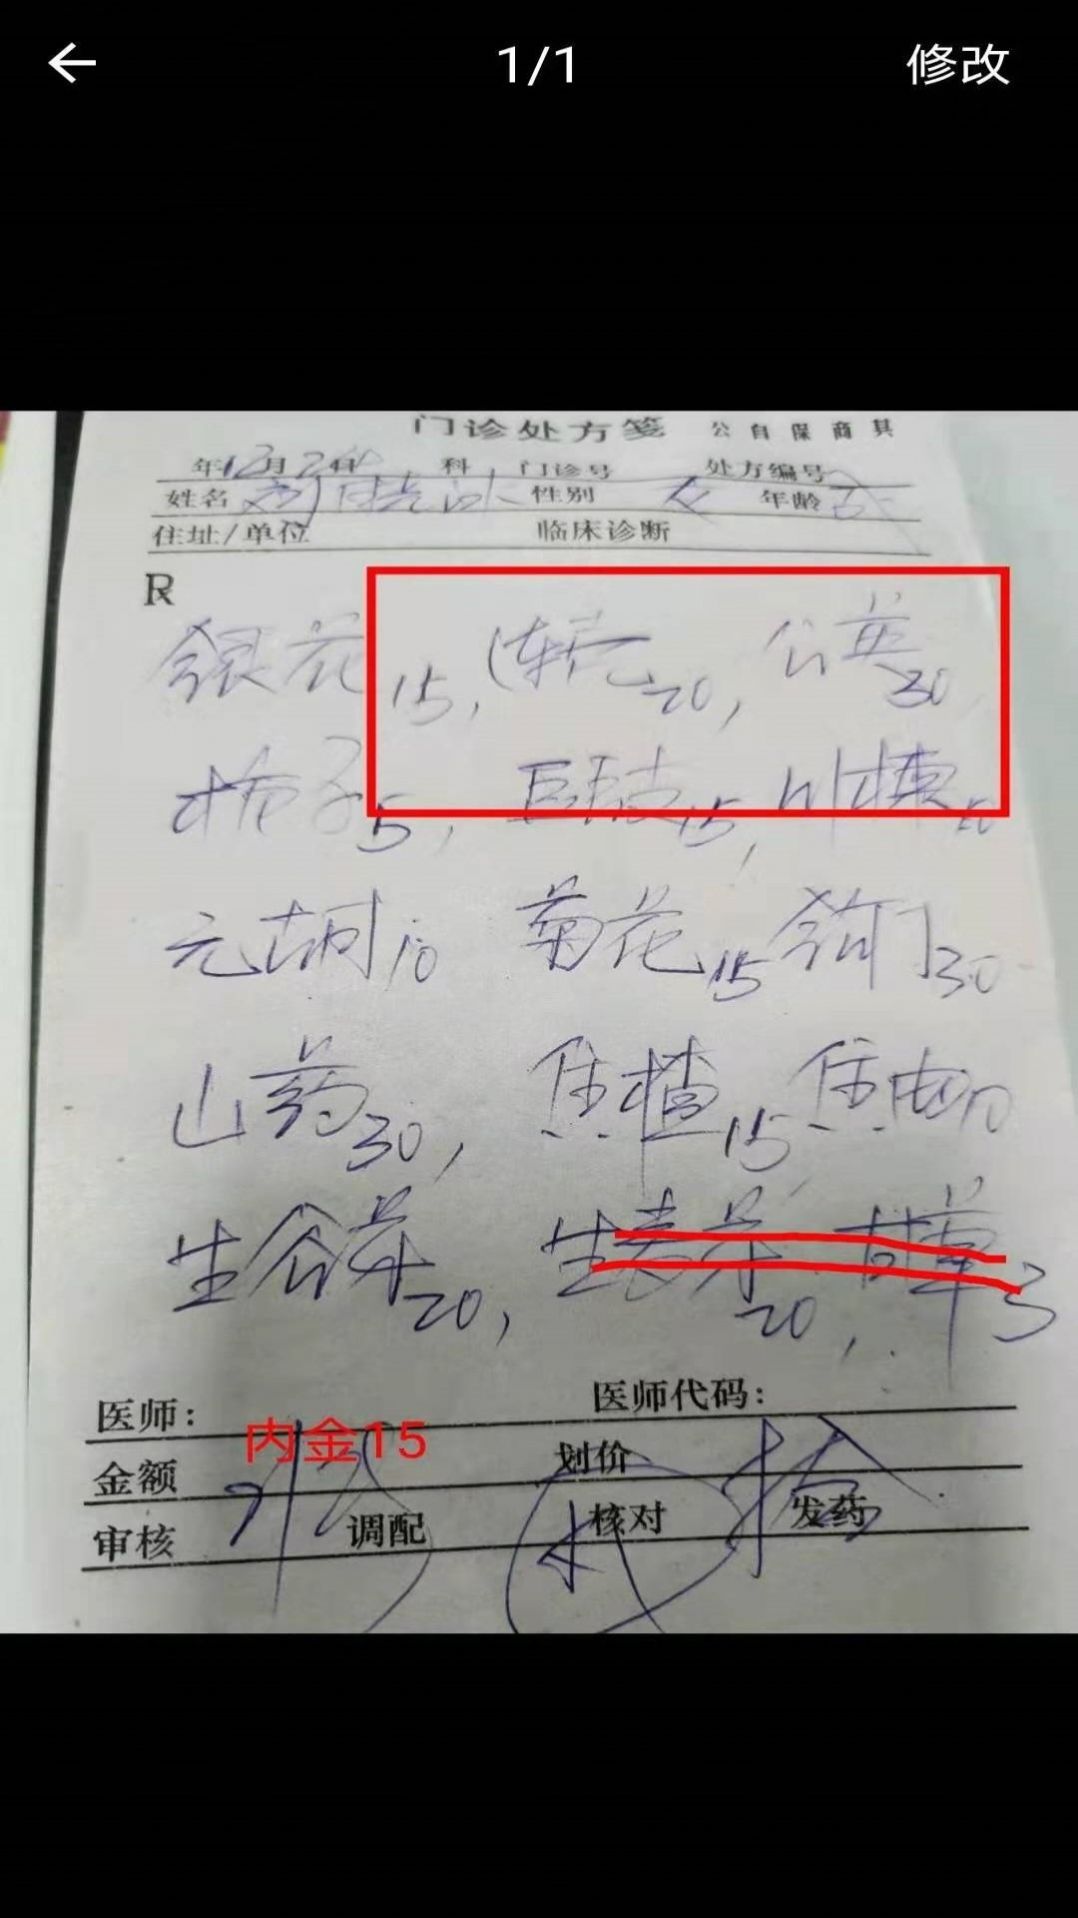 1/1 修改
门诊处方笺 公自保商其
年12月2日 科 门诊号 处方编号
姓名 刘 性别 女 年龄
住址/单位 临床诊断
R
银花15, 连壳20, 公英30
栀子5, 15, 川楝10
元胡10 菊花15 钩丁30
山药30, 焦楂15 焦曲10
生谷芽20, 生麦芽20, 甘草3
医师: 医师代码:
内金15
金额 划价
审核 调配 核对 发药